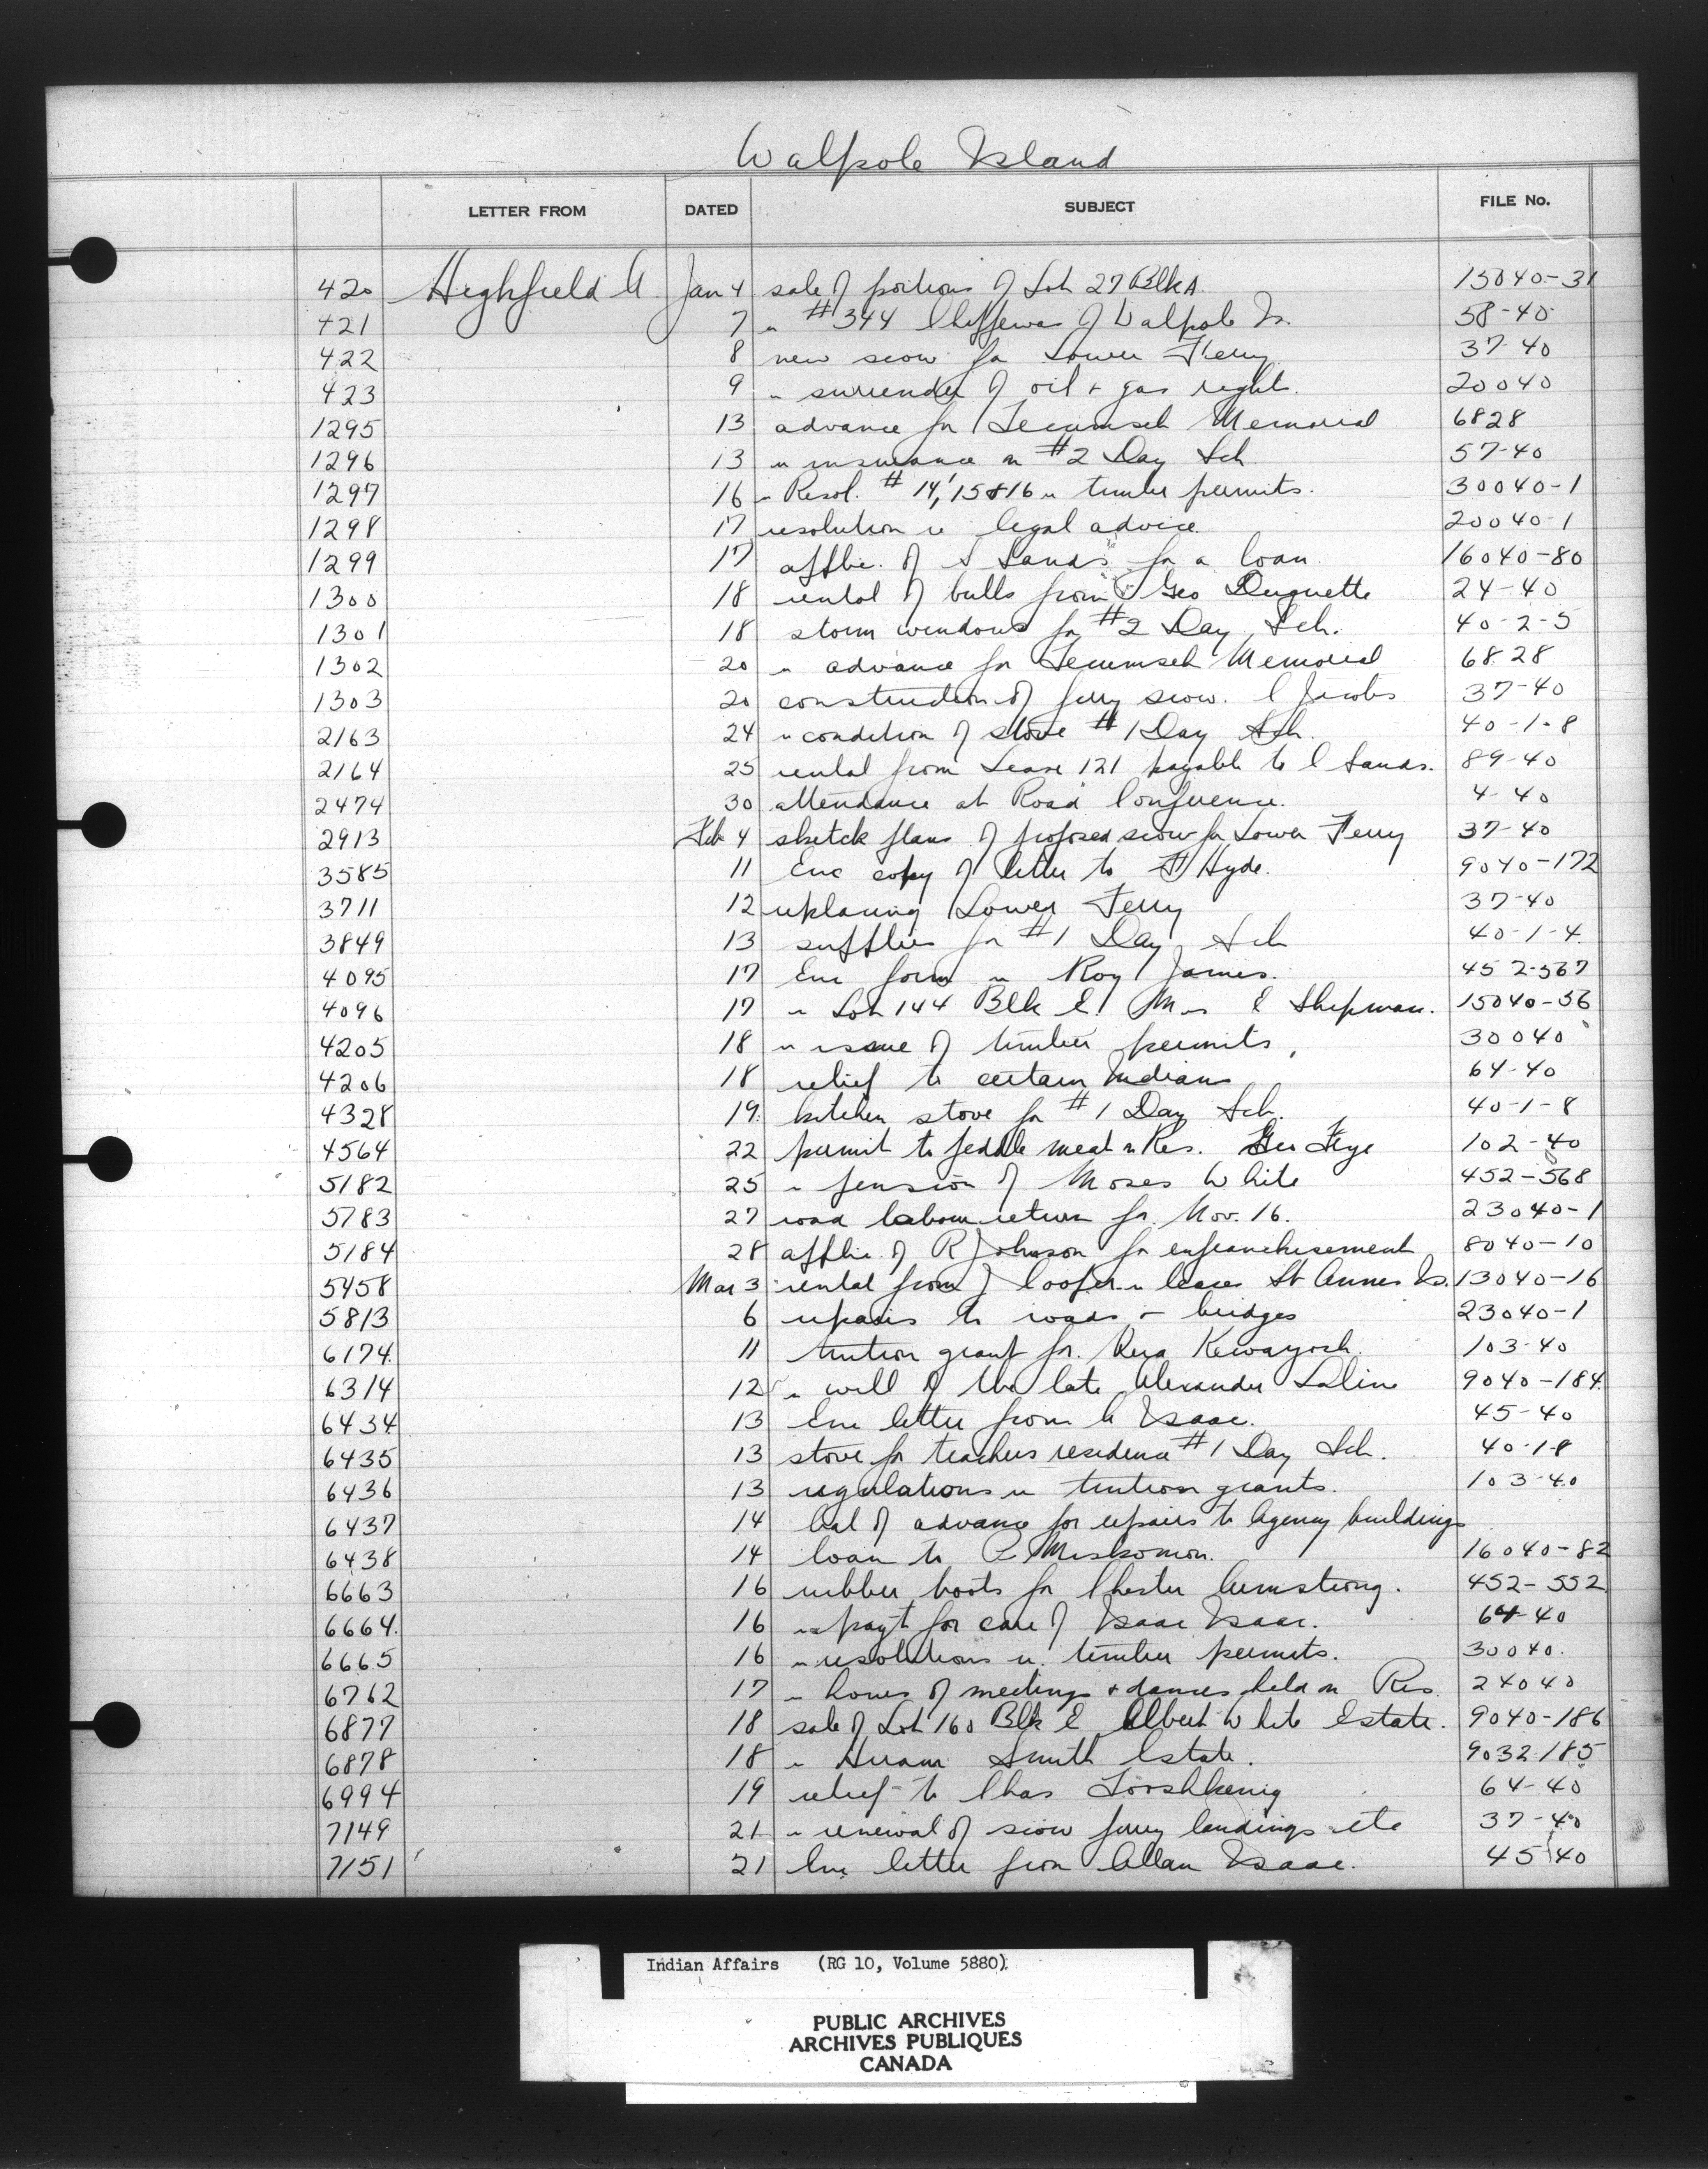 Walpole Island
LETTER FROM DATED SUBJECT FILE No.
420 Highfield A Jan 4 sale of portions of Lot 27 Blk A. 15040-31
421 7 re #344 Chippewas of Walpole Is. 58-40
422 8 new scow for Lower Ferry 37-40
423 9 re surrender of oil + gas right. 20040
1295 13 advance for Tecumseh Memorial 6828
1296 13 re insurance on #2 Day Sch 57-40
1297 16 re Resol. # 14, 15 & 16 re timber permits. 30040-1
1298 17 resolution re legal advice 20040-1
1299 17 applic. of S Sands for a loan 16040-80
1300 18 rental of bulls from Geo Duquette 24-40
1301 18 storm windows for #2 Day Sch. 40-2-5
1302 20 re advance for Tecumseh Memorial 6828
1303 20 construction of ferry scow. C Jacobs 37-40
2163 24 re condition of stove #1 Day Sch. 40-1-8
2164 25 rental from Lease 121 payable to C Sands. 89-40
2474 30 attendance at Road Conference. 4-40
2913 Feb 4 sketch plans of proposed scow for Lower Ferry 37-40
3585 11 Enc copy of letter to Hyde. 9040-172
3711 12 replacing Lower Ferry 37-40
3849 13 supplies for #1 Day Sch 40-1-4
4095 17 Enc form re Roy James. 452-567
4096 17 re Lot 144 Blk E Mrs E Shipman. 15040-56
4205 18 re issue of timber permits, 30040
4206 18 relief to certain Indians 64-40
4328 19. kitchen stove for #1 Day Sch. 40-1-8
4564 22 permit to peddle meat on Res. Geo Frye 102-40
5182 25 re pension of Moses White 452-568
5783 27 road labour return for Nov. 16. 23040-1
5184 28 applic. of R Johnson for enfranchisement 8040-10
5458 Mar 3 rental from J Cooper re leases St Annes Is. 13040-16
5813 6 repairs to roads + bridges 23040-1
6174 11 tuition grant for Kewayosh. 103-40
6314 12 re will of the late Alexander 9040-184
6434 13 Enc letter from A Isaac. 45-40
6435 13 stove for teachers residence #1 Day Sch. 40-1-8
6436 13 regulations re tuition grants. 103-40
6437 14 bal of advance for repairs to Agency buildings
6438 14 loan to Miskomon. 16040-82
6663 16 rubber boots for Chester Armstrong. 452-552
6664 16 re payt for care of Isaac Isaac. 64-40
6665 16 re resolutions re timber permits. 30040.
6762 17 re hours of meetings + dances held on Res. 24040
6877 18 sale of Lot 160 Blk E Albert White Estate. 9040-186
6878 18 re Hiram Smith Estate. 9032-185
6994 19 relief to Chas Tooshkenig 64-40
7149 21 re renewal of scow ferry landings etc 37-40
7151 21 Enc letter from Allan Isaac. 45-40
Indian Affairs (RG 10, Volume 5880)
PUBLIC ARCHIVES
ARCHIVES PUBLIQUES
CANADA